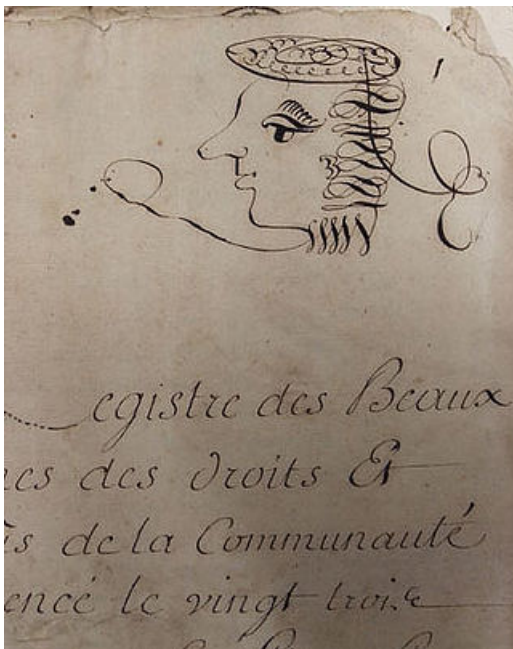 egistre des Beaux
es des droits Et
s de la Communauté
encé le vingt trois.e